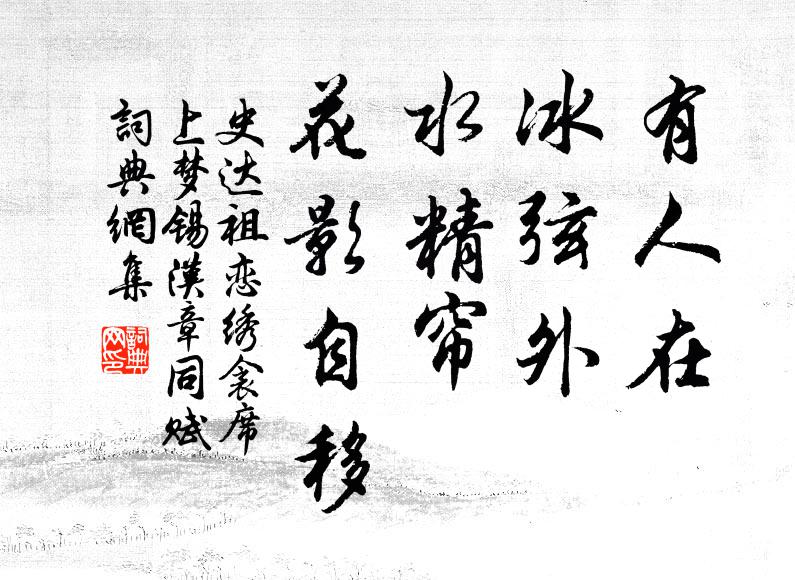 有人在
冰弦外
水精帘
花影自移
史达祖恋绣衾席
上梦锡漢章同赋
詞典網集
詞典
网印